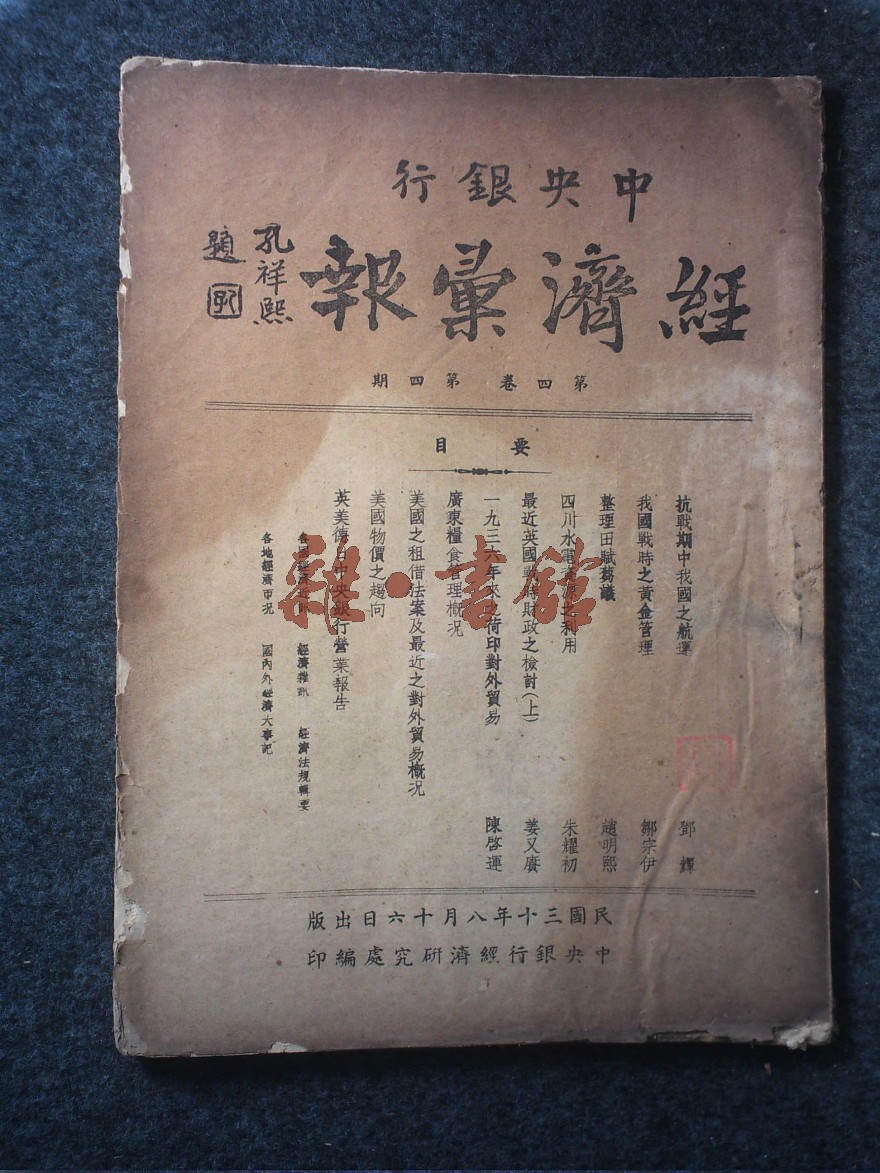 中央銀行
經濟彙報
孔祥熙
題
第四卷 第四期
要目
抗戰期中我國之航運 鄧 輝
我國戰時之黃金管理 鄒宗伊
整理田賦芻議 趙明熙
四川水電資源之利用 朱耀初
最近英國戰時財政之檢討(上) 姜又賡
一九三六年來之荷印對外貿易 陳啓運
廣東糧食管理概况
美國之租借法案及最近之對外貿易概况
美國物價之趨向
英美德日中央銀行營業報告
經濟雜訊 經濟法規輯要
各地經濟市况 國內外經濟大事記
民國三十年八月十六日出版
中央銀行經濟研究處編印
雜·書館